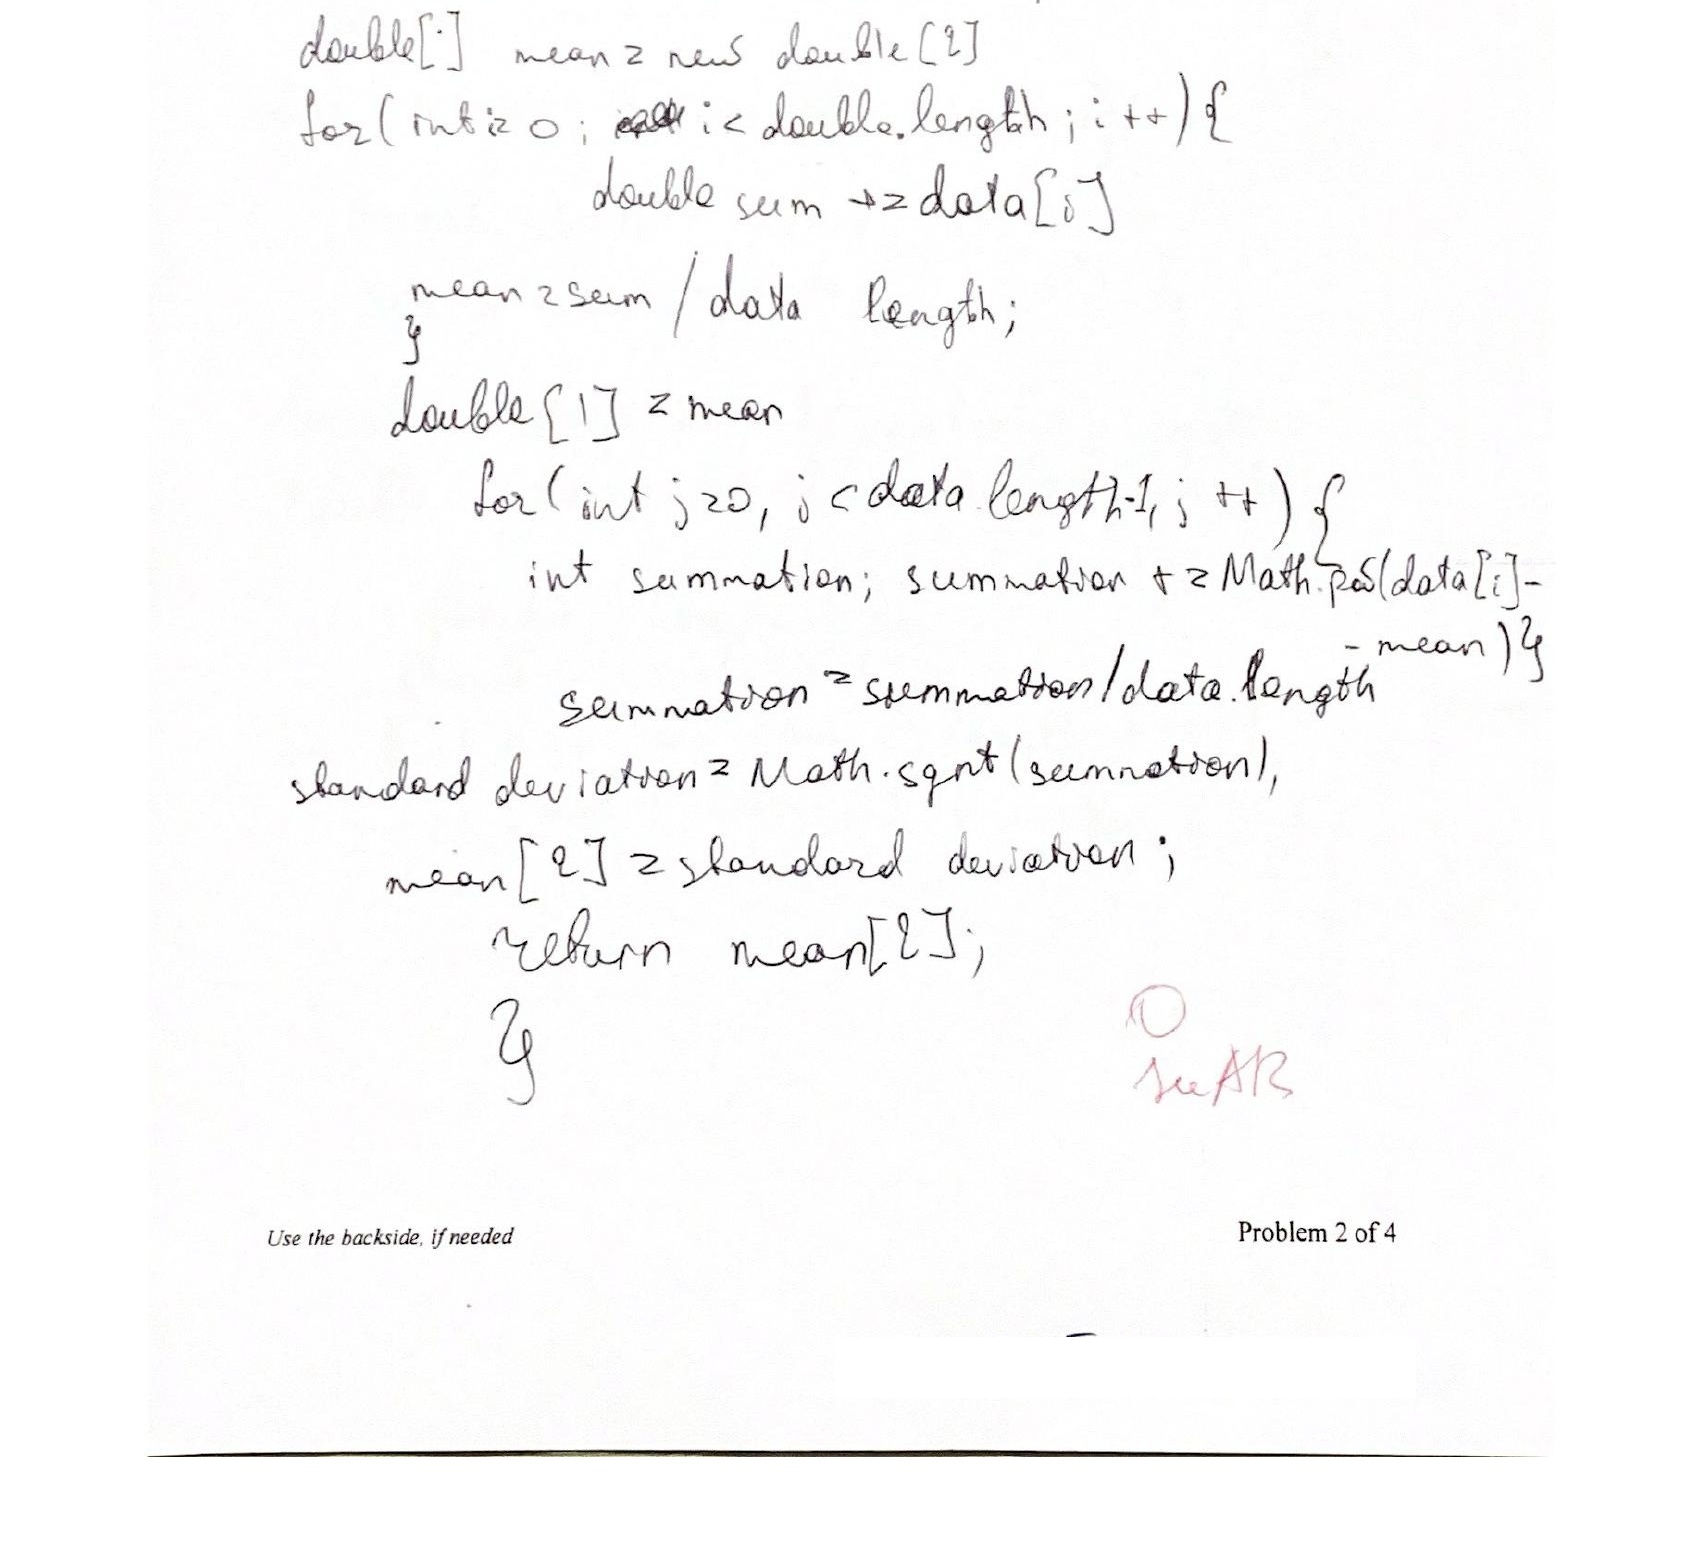 double[] mean = new double[2]
for(int i = 0; i < double.length; i++){
double sum += data[i]
mean = sum / data length;
}
double[1] = mean
for(int j = 0, j < data.length-1, j++){
int summation; summation += Math.pow(data[i]-
- mean)}
summation = summation/data.length
standard deviation = Math.sqrt(summation),
mean[2] = standard deviation;
return mean[2];
}
0
see AB
Use the backside, if needed
Problem 2 of 4